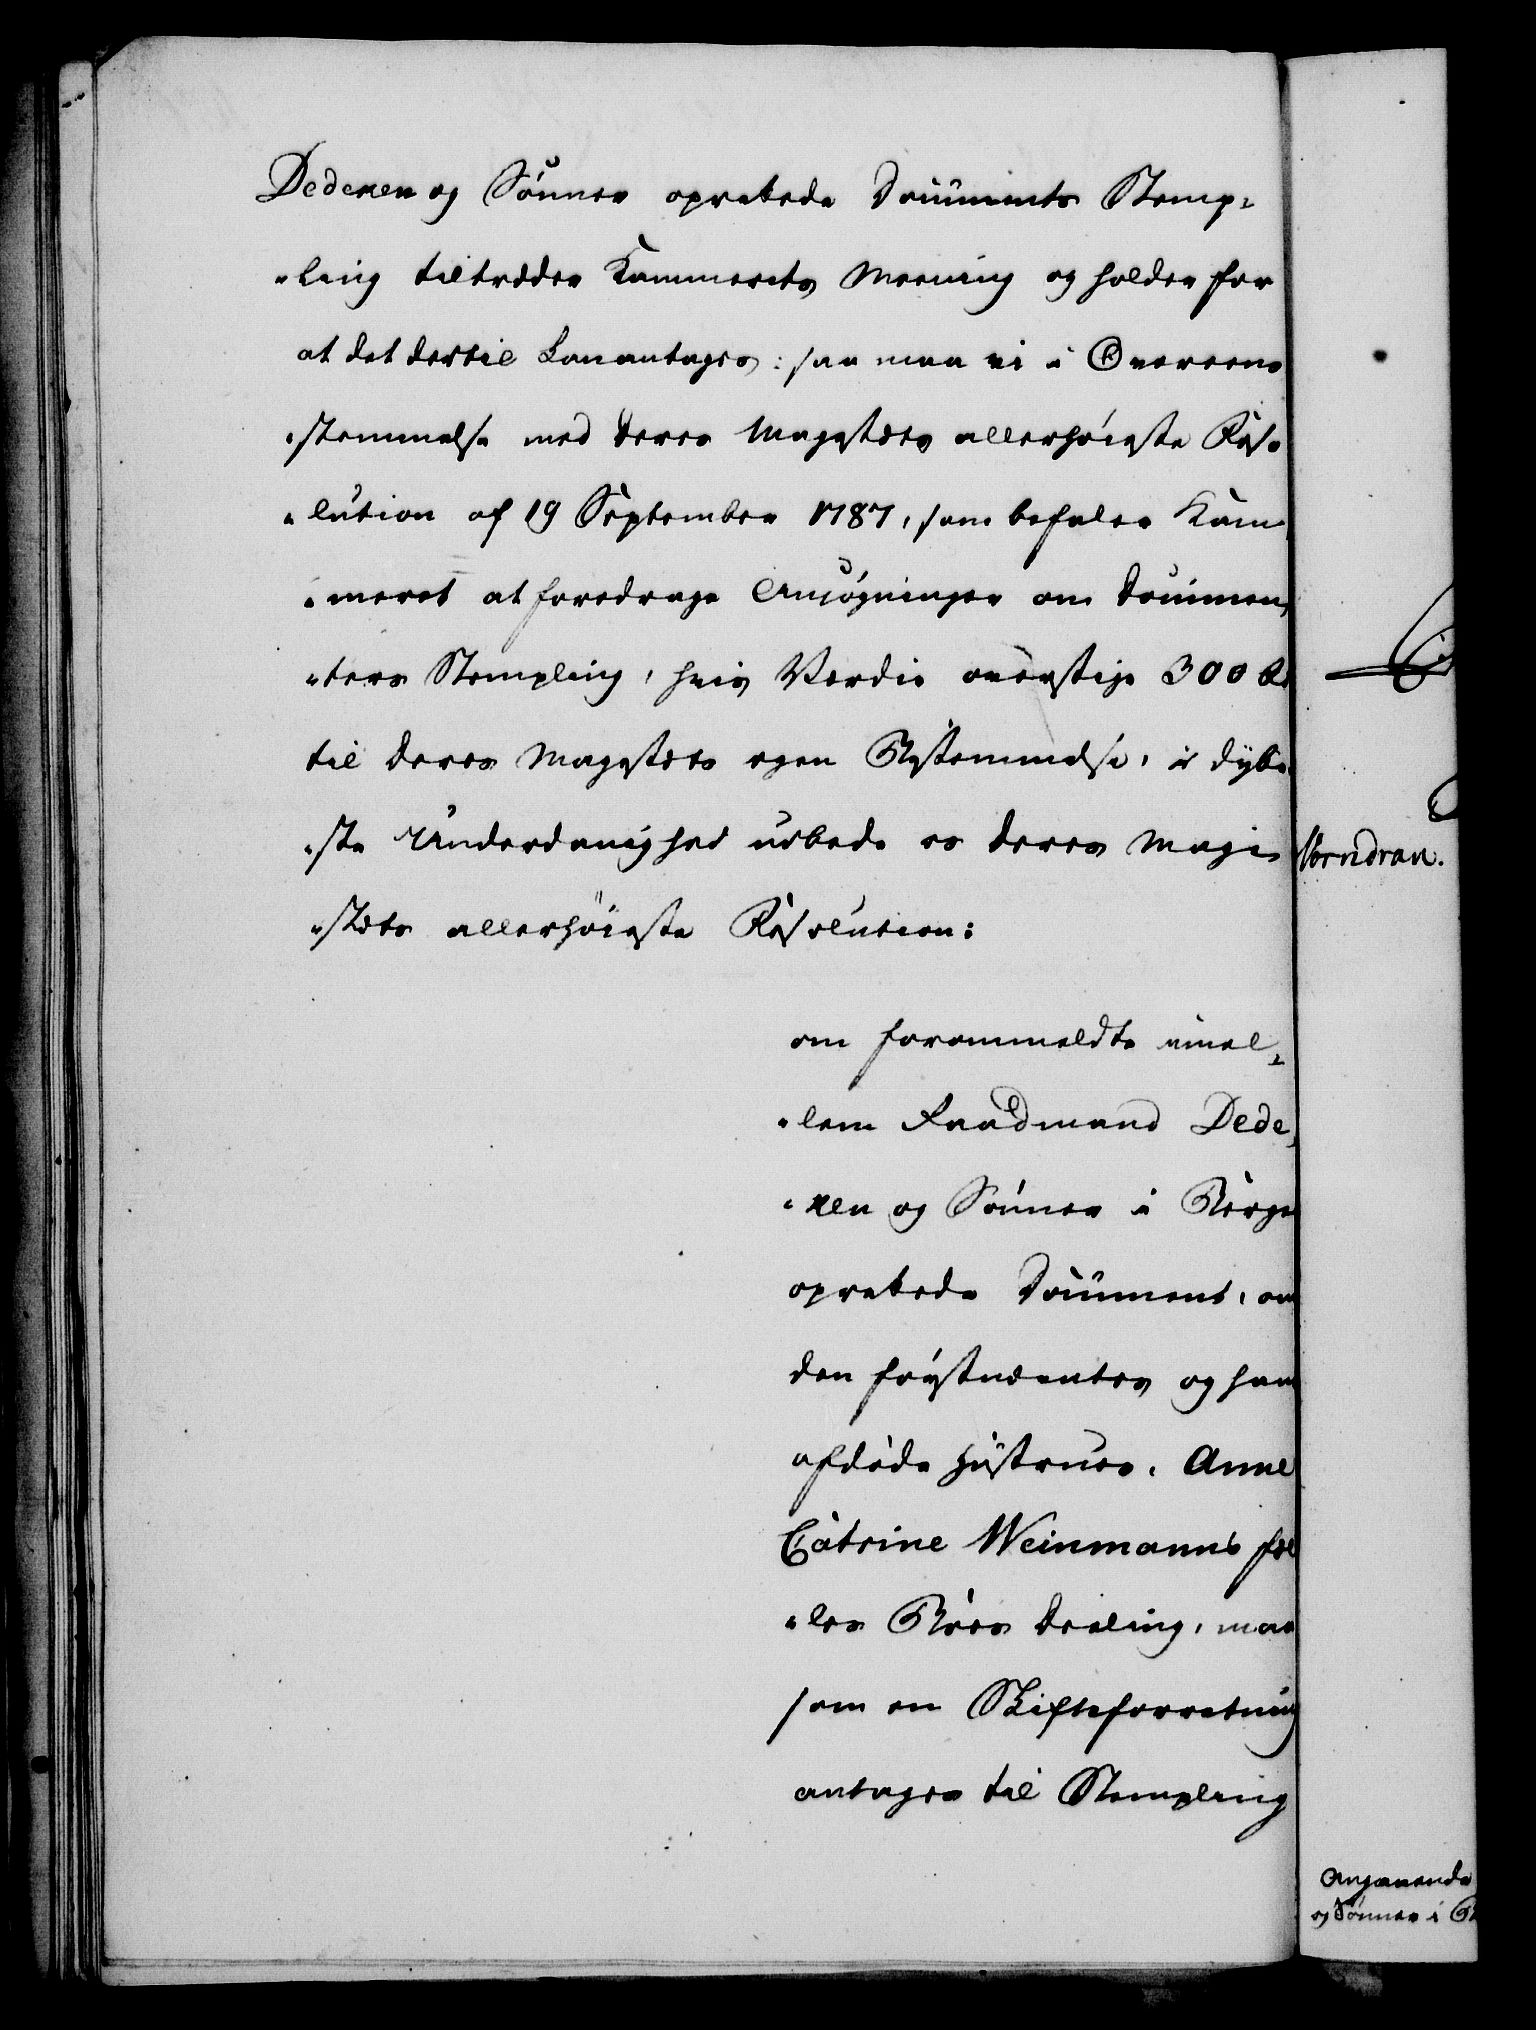 Dedeken og Sönner oprettede Documents Stemp-
-ling tiltræder Kammerets Meening og holder for
at det dertil kan antages: saa maa vi i Overeens
-stemmelse med Deres Majestæts allerhöieste Reso
-lution af 19 September 1787, som befaler Kam
-meret at foredrage Ansögninger om Documen
-ters Stempling, hvis Værdie overstige 300 Rd
til Deres Majestæts egen Bestemmelse, i dybe
-ste Underdanighed udbede os Deres Maje
-stæts allerhöieste Resolution:
om forommeldte imel-
-lem Raadmand Dede
-ken og Sönner i Bergen
oprettede Document, om
den förstnævntes og hans
afdöde Hustrues, Anne
Catrine Weinmanns fæl
-les Boes Deeling, maa
som en Skifteforretning
antages til Stempling
Angaaende
og Sönner i